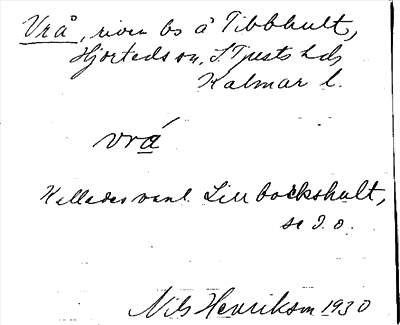 Vrå, riven bs å Tibbhult,
Hjorteds sn, S Tjusts hd,
Kalmar l.
vrá
Kallades vanl. Lillbockshult,
se d. o.
Nils Henrikson 1930